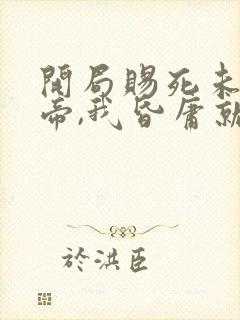 開局賜死未
帝,我昏庸就
於洪臣